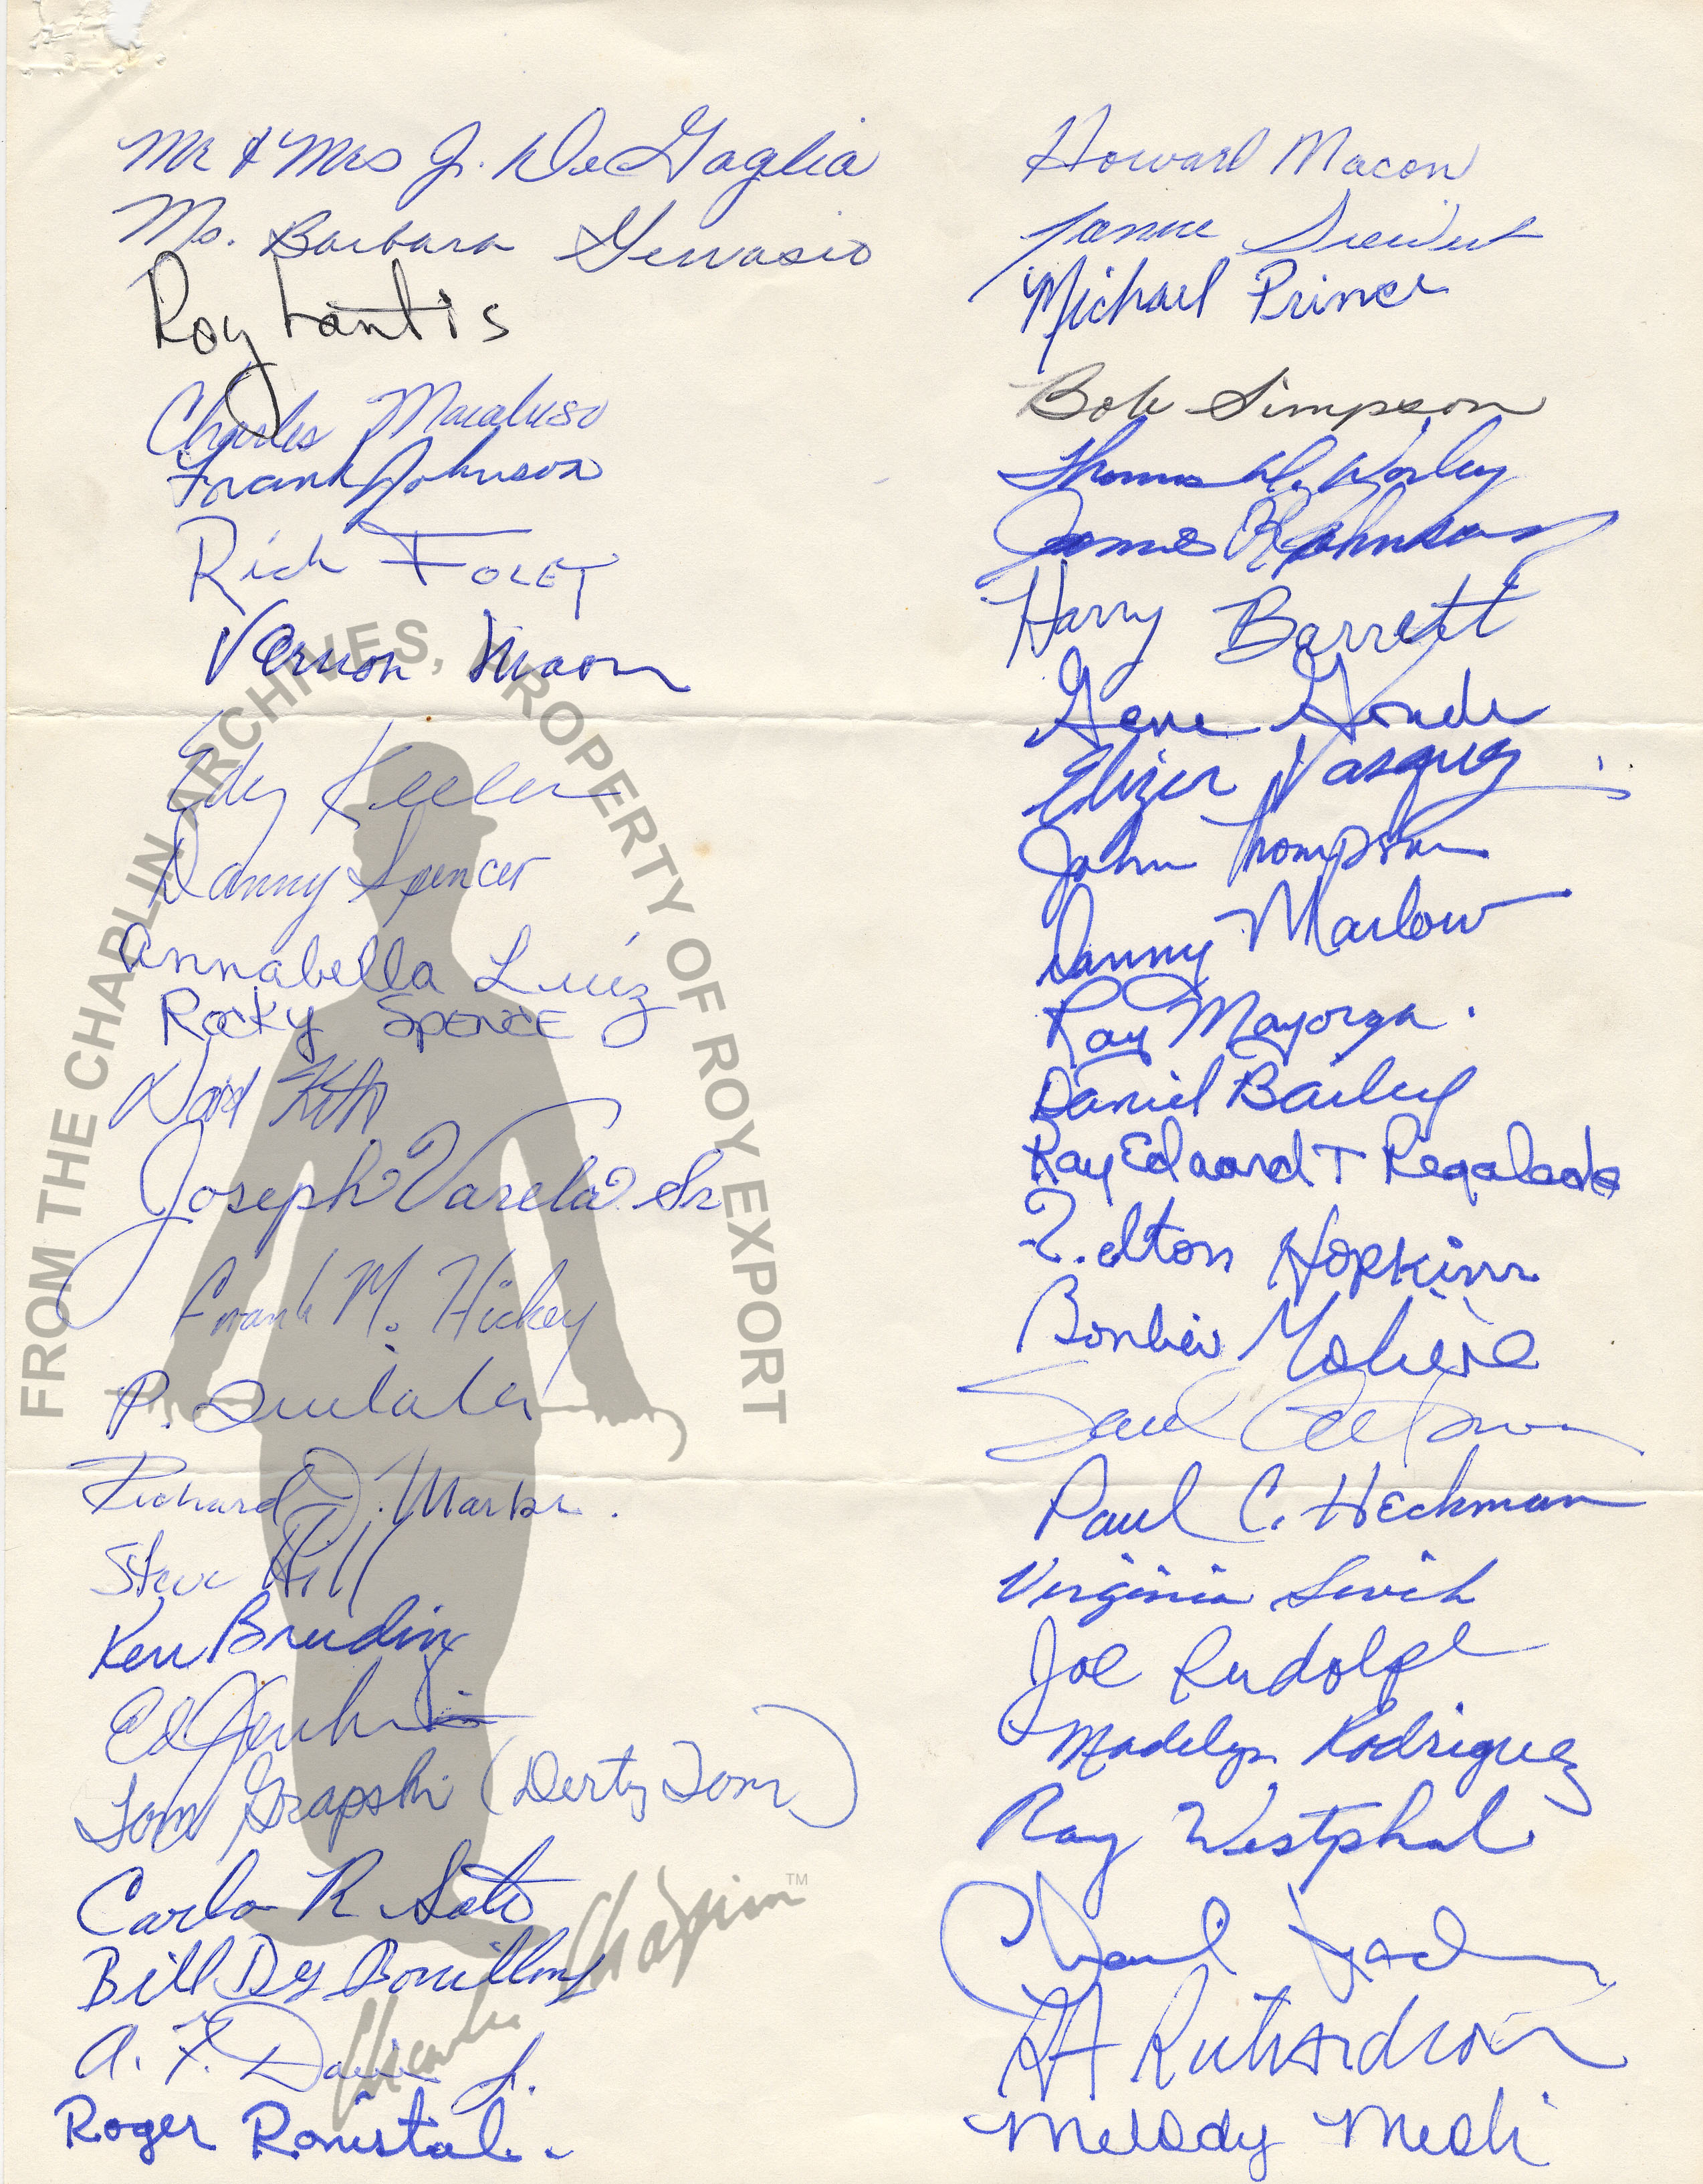 Mr & Mrs J. DeGaglia
Ms. Barbara Gervasio
Roy Lantis
Charles Macaluso
Frank Johnson
Rich FOLEY
Vernon
Edy Keeler
Danny Spencer
Annabella Luíz
Rocky SPENCE
Joseph Varela Sr
Frank M. Hickey
P.
Richard J. Marks.
Steve Hill
Ken
Ed Jenkins
Tom Grapski (Dirty Tom)
Carlo R Soto
Bill
A. F. Davis Jr.
Roger
Howard Macon
Michael Prince
Bob Simpson
Thomas W. Worley
James R Johnson
Harry Barrett
Gene
Eliger Vasquez
John Thompson
Danny Marlow
Ray Mayorga.
Daniel Bailey
Ray Edward T Regalado
Hopkins
Saul
Paul C. Heckman
Virginia
Joe Rudolph
Madelyn Rodriguez
Ray Westphal
RA Richardson
Melody
FROM THE CHAPLIN ARCHIVES, PROPERTY OF ROY EXPORT
Charles Chaplin™